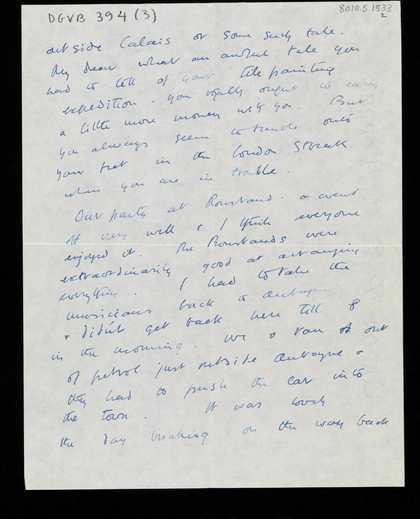 DGVB 394 (3)
8010.5.1533
2
outside Calais or some such tale.
My dear what an awful tale you
had to tell of your little painting
expedition. You really ought to carry
a little more money with you. But
you always seem to trade onto
your feet in the London Streets
when you are in trouble.
Our party at went
off very well & I think everyone
enjoyed it. The were
extraordinarily good at arranging
everything. I had to take the
musicians back to
& didn't get back here till 8
in the morning. We ran out
of petrol just outside &
they had to push the car into
the town. It was lovely
the day breaking on the way back